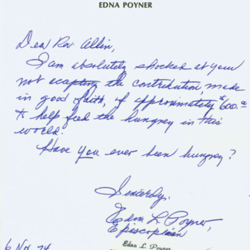 EDNA POYNER
Dear Rev Allin,
I am absolutely shocked at your
not accepting the contribution, made
in good faith, of approximately $600.00
to help feed the hungry in this
world.
Have you ever been hungry?
Sincerely,
Edna L. Poyner,
Episcopalian
Edna L. Poyner
6 Nov. 74